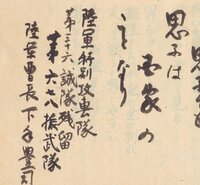 思子は
国家の
なり
陸軍特別攻撃隊
第三十六誠隊残留
第六七八振武隊
陸軍曹長下手豊司